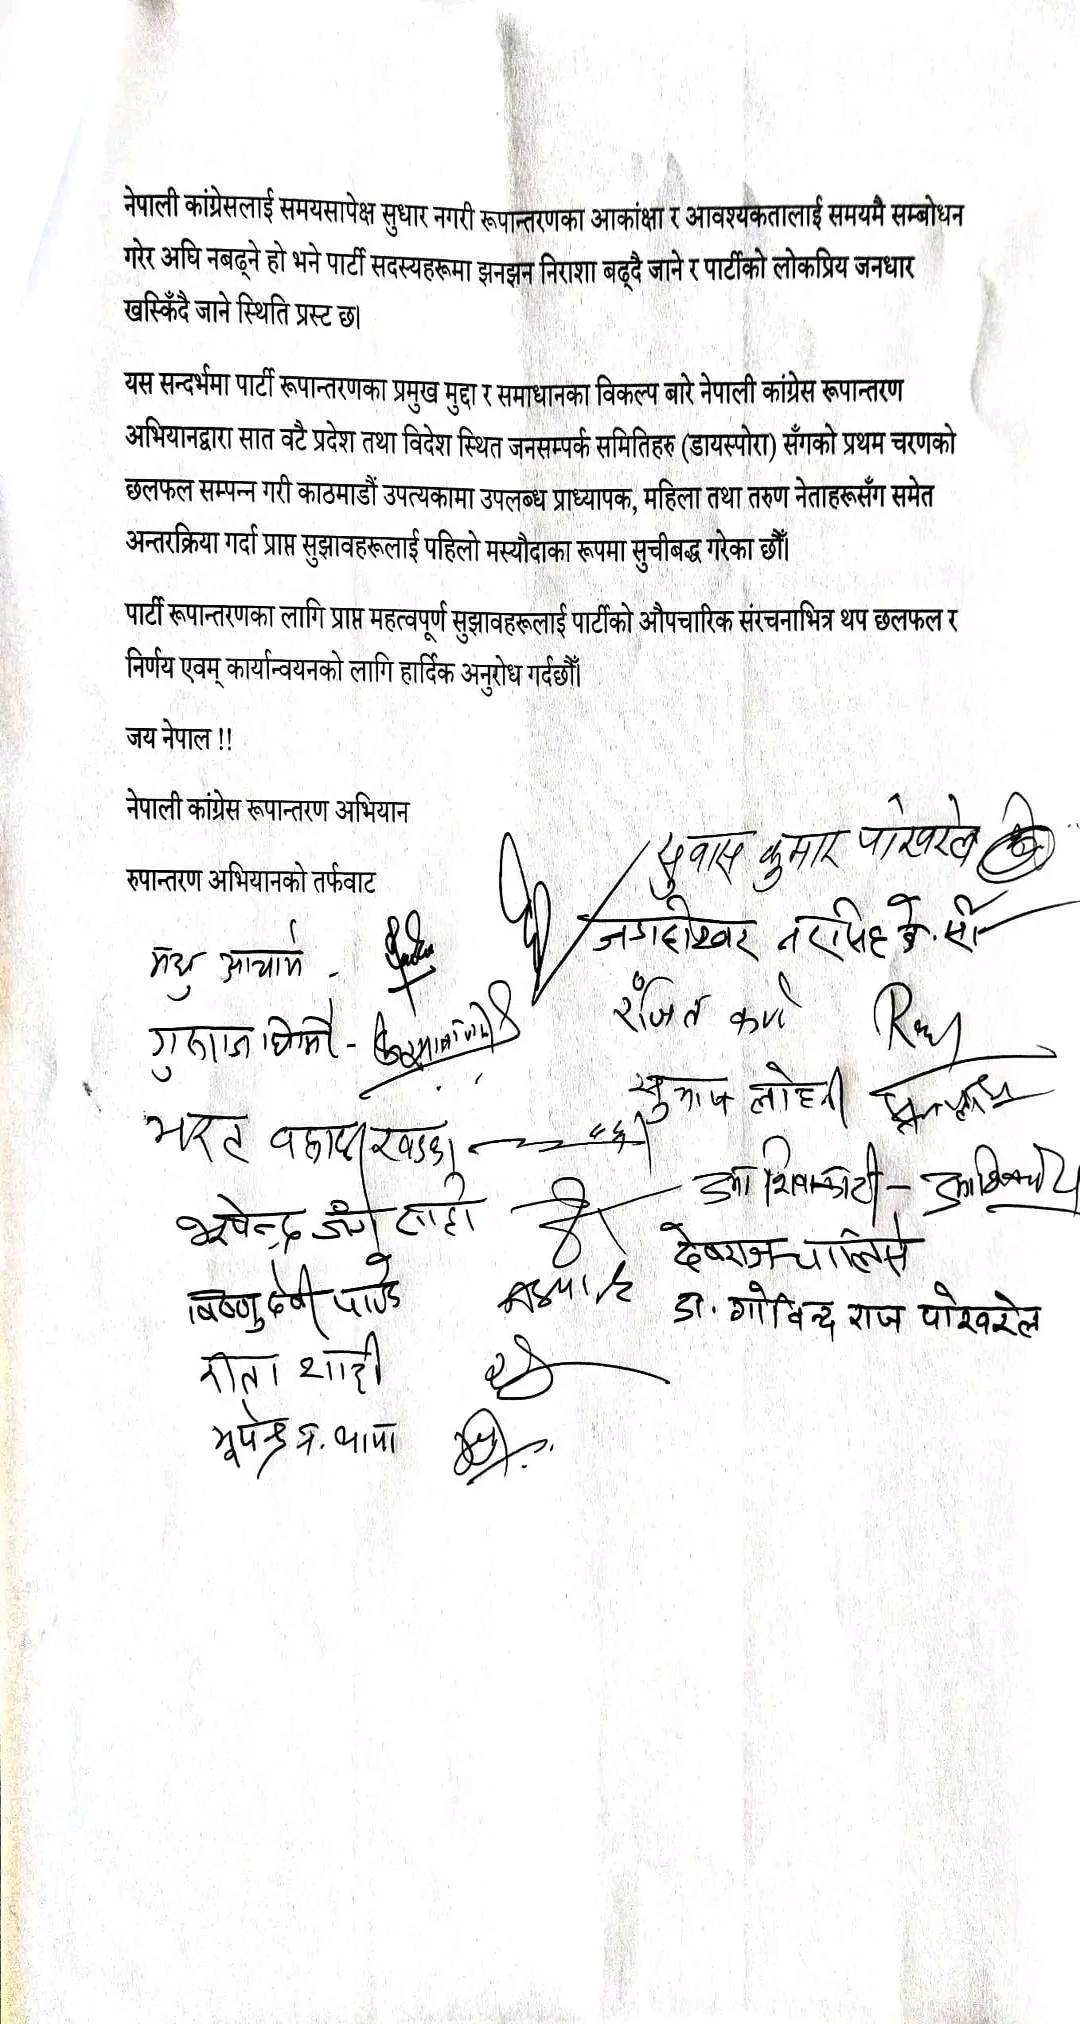 नेपाली कांग्रेसलाई समयसापेक्ष सुधार नगरी रूपान्तरणका आकांक्षा र आवश्यकतालाई समयमै सम्बोधन
गरेर अघि नबढ्ने हो भने पार्टी सदस्यहरूमा झनझन निराशा बढ्दै जाने र पार्टीको लोकप्रिय जनधार
खस्किँदै जाने स्थिति प्रस्ट छ।
यस सन्दर्भमा पार्टी रूपान्तरणका प्रमुख मुद्दा र समाधानका विकल्प बारे नेपाली कांग्रेस रूपान्तरण
अभियानद्वारा सात वटै प्रदेश तथा विदेश स्थित जनसम्पर्क समितिहरु (डायस्पोरा) सँगको प्रथम चरणको
छलफल सम्पन्न गरी काठमाडौं उपत्यकामा उपलब्ध प्राध्यापक, महिला तथा तरुण नेताहरूसँग समेत
अन्तरक्रिया गर्दा प्राप्त सुझावहरूलाई पहिलो मस्यौदाका रूपमा सुचीबद्ध गरेका छौँ।
पार्टी रूपान्तरणका लागि प्राप्त महत्वपूर्ण सुझावहरूलाई पार्टीको औपचारिक संरचनाभित्र थप छलफल र
निर्णय एवम् कार्यान्वयनको लागि हार्दिक अनुरोध गर्दछौँ।
जय नेपाल !!
नेपाली कांग्रेस रूपान्तरण अभियान
रुपान्तरण अभियानको तर्फवाट
मधु आचार्य -
गुरुराज घिमिरे -
भरत बहादुर खड्का
भूपेन्द्र जंग शाही
बिष्णु देवी पाण्डे
गीता शाही
भूपेन्द्र प्र. थापा
सुवास कुमार पोखरेल
जगदीश्वर नरसिंह के. सी
रंजित कर्ण
लोहनी
देवराज चालिसे
डा. गोविन्द राज पोखरेल